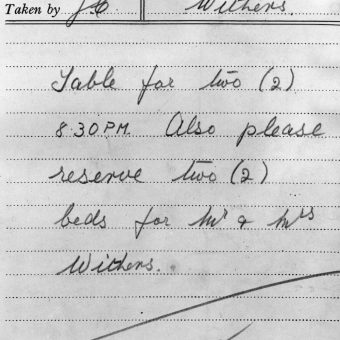 Taken by JC Withers.
Table for two (2)
8.30 PM. Also please
reserve two (2)
beds for Mr & Mrs
Withers.